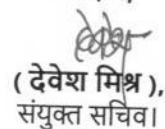 ( देवेश मिश्र ),
संयुक्त सचिव।